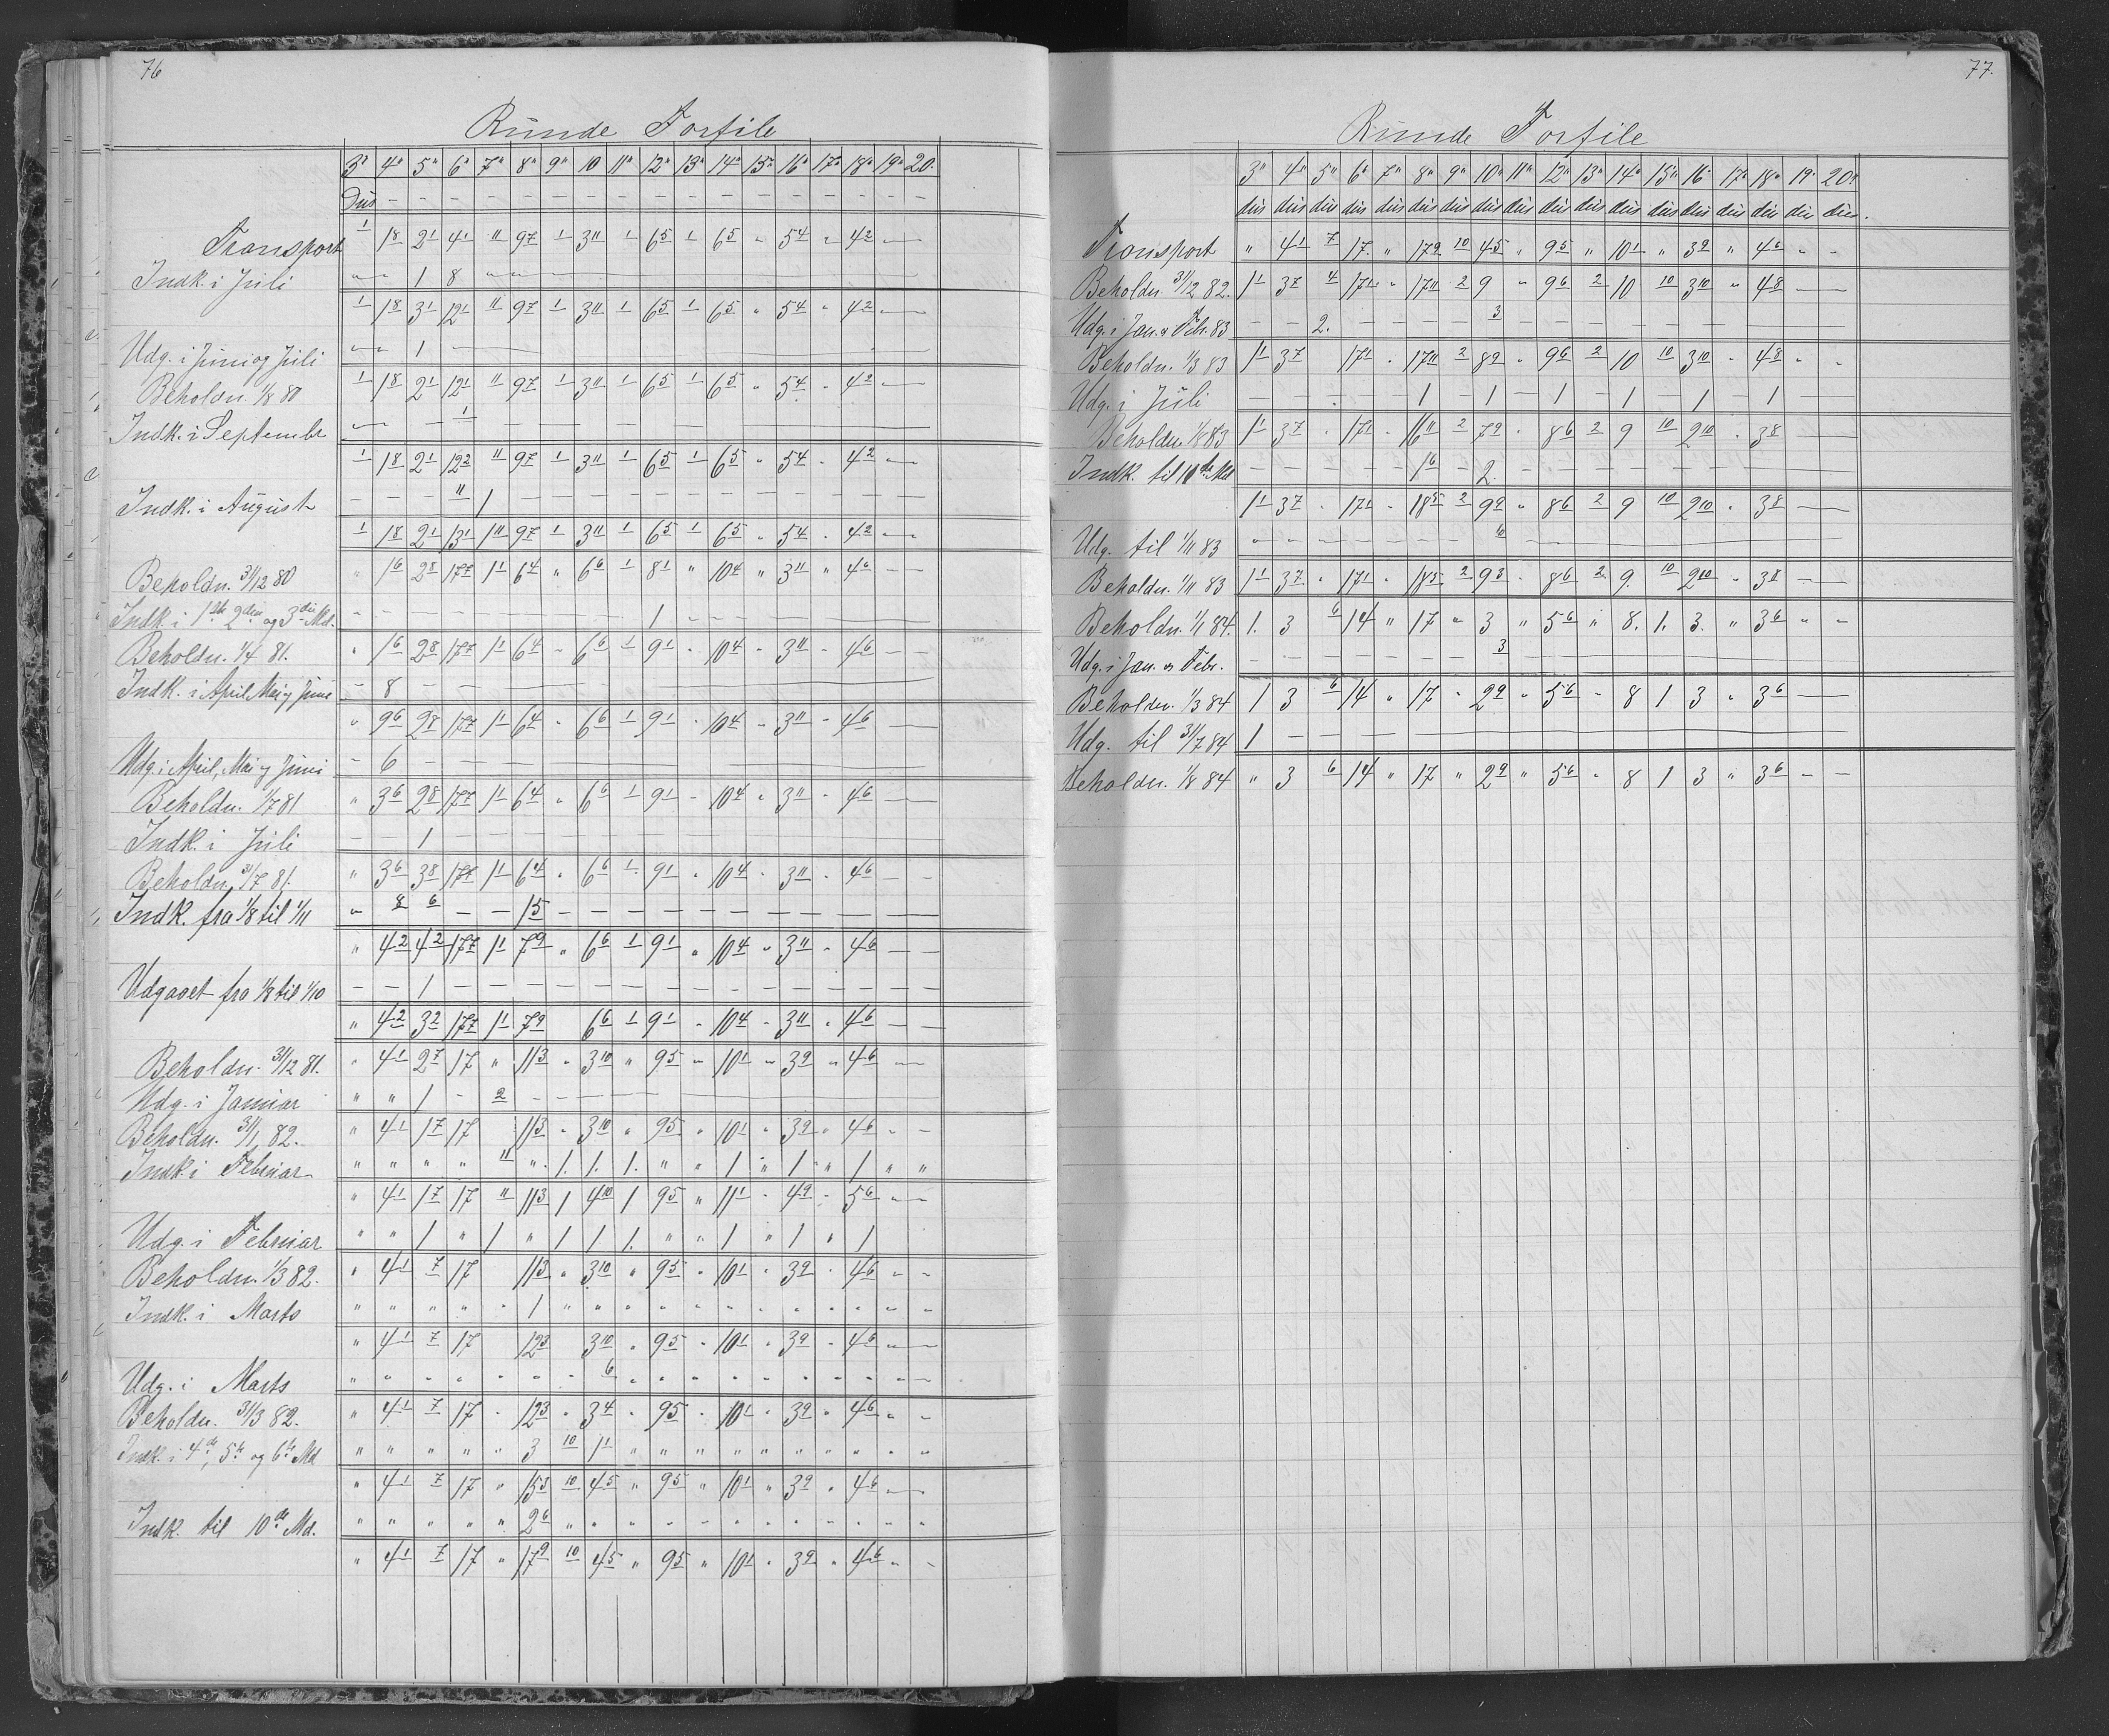 76
Runde Forfile
3" 4" 5" 6" 7" 8" 9" 10 11" 12" 13" 14" 15" 16" 17" 18" 19" 20.
Dus — — — — — — — — — — — — — — — — —
Transport 1 1 8 2 1 4 1 11 9 7 1 3 11 1 6 5 1 6 5 " 5 4 " 4 2 —
Indk. i Juli " " 1 8 " " — —
1 1 8 3 1 12 1 11 9 7 1 3 11 1 6 5 1 6 5 " 5 4 " 4 2 —
Udg. i Juni og Juli " " 1 —
Beholdn. 1/8 80 1 1 8 2 1 12 1 11 9 7 1 3 11 1 6 5 1 6 5 " 5 4 " 4 2 —
Indk. i Septembr — — 1 — — —
1 1 8 2 1 12 2 11 9 7 1 3 11 1 6 5 1 6 5 " 5 4 " 4 2 —
Indk. i August — — — 11 1 — — —
1 1 8 2 1 13 1 1 11 9 7 1 3 11 1 6 5 1 6 5 " 5 4 " 4 2 —
Beholdn. 31/12 80 " 1 6 2 8 17 7 1 1 6 4 " 6 6 1 8 1 " 10 4 " 3 11 " 4 6 — —
Indk. i 1ste 2den og 3die Md. — — — — — — 1 — —
Beholdn. 1/4 81. " 1 6 2 8 17 7 1 1 6 4 " 6 6 1 9 1 " 10 4 " 3 11 " 4 6 — —
Indk. i April, Mai og Juni — 8 — — —
" 9 6 2 8 17 7 1 1 6 4 " 6 6 1 9 1 " 10 4 " 3 11 " 4 6 — —
Udg. i April, Mai og Juni — 6 — — —
Beholdn. 1/7 81 " 3 6 2 8 17 7 1 1 6 4 " 6 6 1 9 1 " 10 4 " 3 11 " 4 6 — —
Indk. i Juli — — 1 — — —
Beholdn. 31/7 81. " 3 6 3 8 17 7 1 1 6 4 " 6 6 1 9 1 " 10 4 " 3 11 " 4 6 — —
Indk. fra 1/8 til 1/11 " 8 6 — — 1 5 — — —
" 4 2 4 2 17 7 1 1 7 9 " 6 6 1 9 1 " 10 4 " 3 11 " 4 6 — —
Udgaaet fra 1/8 til 1/10 — — 1 — — —
" 4 2 3 2 17 7 1 1 7 9 6 6 1 9 1 " 10 4 " 3 11 " 4 6 — —
Beholdn. 31/12 81. " 4 1 2 7 17 " 11 3 " 3 10 " 9 5 " 10 1 " 3 9 " 4 6 —
Udg. i Januar " " 1 - 2 — — —
Beholdn. 31/1 82. " 4 1 1 7 17 11 3 " 3 10 " 9 5 " 10 1 " 3 9 " 4 6 " -
Indk. i Februar " " " " 11 " 1. 1. 1. " " 1 " 1 " 1 " "
" 4 1 1 7 17 11 11 3 1 4 10 1 9 5 " 11 1 " 4 9 " 5 6 " -
Udg. i Februar " " 1 " 1 " 1 1 1. " " 1 " 1 " 1
Beholdn. 1/3 82. " 4 1 7 17 11 3 " 3 10 " 9 5 " 10 1 " 3 9 " 4 6 " -
Indk. i Marts " " " " " 1 " " " " " " " " " " " "
" 4 1 7 17 12 3 3 10 " 9 5 " 10 1 " 3 9 " 4 6 " -
Udg. i Marts " " " " " " " 6 " " " " " " " " " -
Beholdn. 31/3 82. " 4 1 7 17 " 12 3 " 3 4 " 9 5 " 10 1 " 3 9 " 4 6 " "
Indk. i 4de, 5te og 6te Md " " " " " 3 10 1 1 " " " " " " " " " "
" 4 1 7 17 " 15 3 10 4 5 " 9 5 " 10 1 " 3 9 " 4 6 " -
Indk. til 10de Md. " " " " " 2 6 " " " " " " " " " " " "
" 4 1 7 17 " 17 9 10 4 5 " 9 5 " 10 1 " 3 9 " 4 6 " -
77.
Runde Forfile
3" 4" 5" 6" 7" 8" 9" 10" 11" 12" 13" 14" 15" 16" 17" 18" 19" 20"
dus dus dus dus dus dus dus dus dus dus dus dus dus dus dus dus dus dus.
Transport " 4 1 7 17. " 17 9 10 4 5 " 9 5 " 10 1 " 3 9 " 4 6 " -
Beholdn. 31/12 82. 1 1 3 7 4 17 1 " 17 11 2 9 " 9 6 2 10 10 3 10 " 4 8 —
Udg. i Jan. & Febr. 83 — — 2. — — — — 3 — — —
Beholdn. 1/3 83 1 1 3 7 17 1 " 17 11 2 8 9 " 9 6 2 10 10 3 10 " 4 8 " "
Udg. i Juli — — . — — 1 — 1 — 1 — 1 — 1 — 1 —
Beholdn. 1/8 83 1 1 3 7 " 17 1 " 16 11 2 7 9 " 8 6 2 9 10 2 10 " 3 8 —
Indk. til 10de Md — — — — — 1 6 — 2. — — —
1 1 3 7 " 17 1 " 18 5 2 9 9 " 8 6 2 9 10 2 10 " 3 8 —
Udg. til 1/11 83 — — — — — — — 6 — — —
Beholdn. 1/11 83 1 1 3 7 " 17 1 " 18 5 2 9 3 " 8 6 2 9. 10 2 10 " 3 8 — —
Beholdn. 1/1 84. 1. 3 6 14 " 17 " 3 " 5 6 " 8. 1. 3. " 3 6 " -
Udg. i Jan. og Febr. — — — — — — — 3 — —
Beholdn. 1/3 84 1 3 6 14 " 17 " 2 9 " 5 6 " 8 1 3 " 3 6 —
Udg. til 31/7 84 1 — — — —
Beholdn. 1/8 84 " 3 6 14 " 17 " 2 9 " 5 6 " 8 1 3 " 3 6 — —